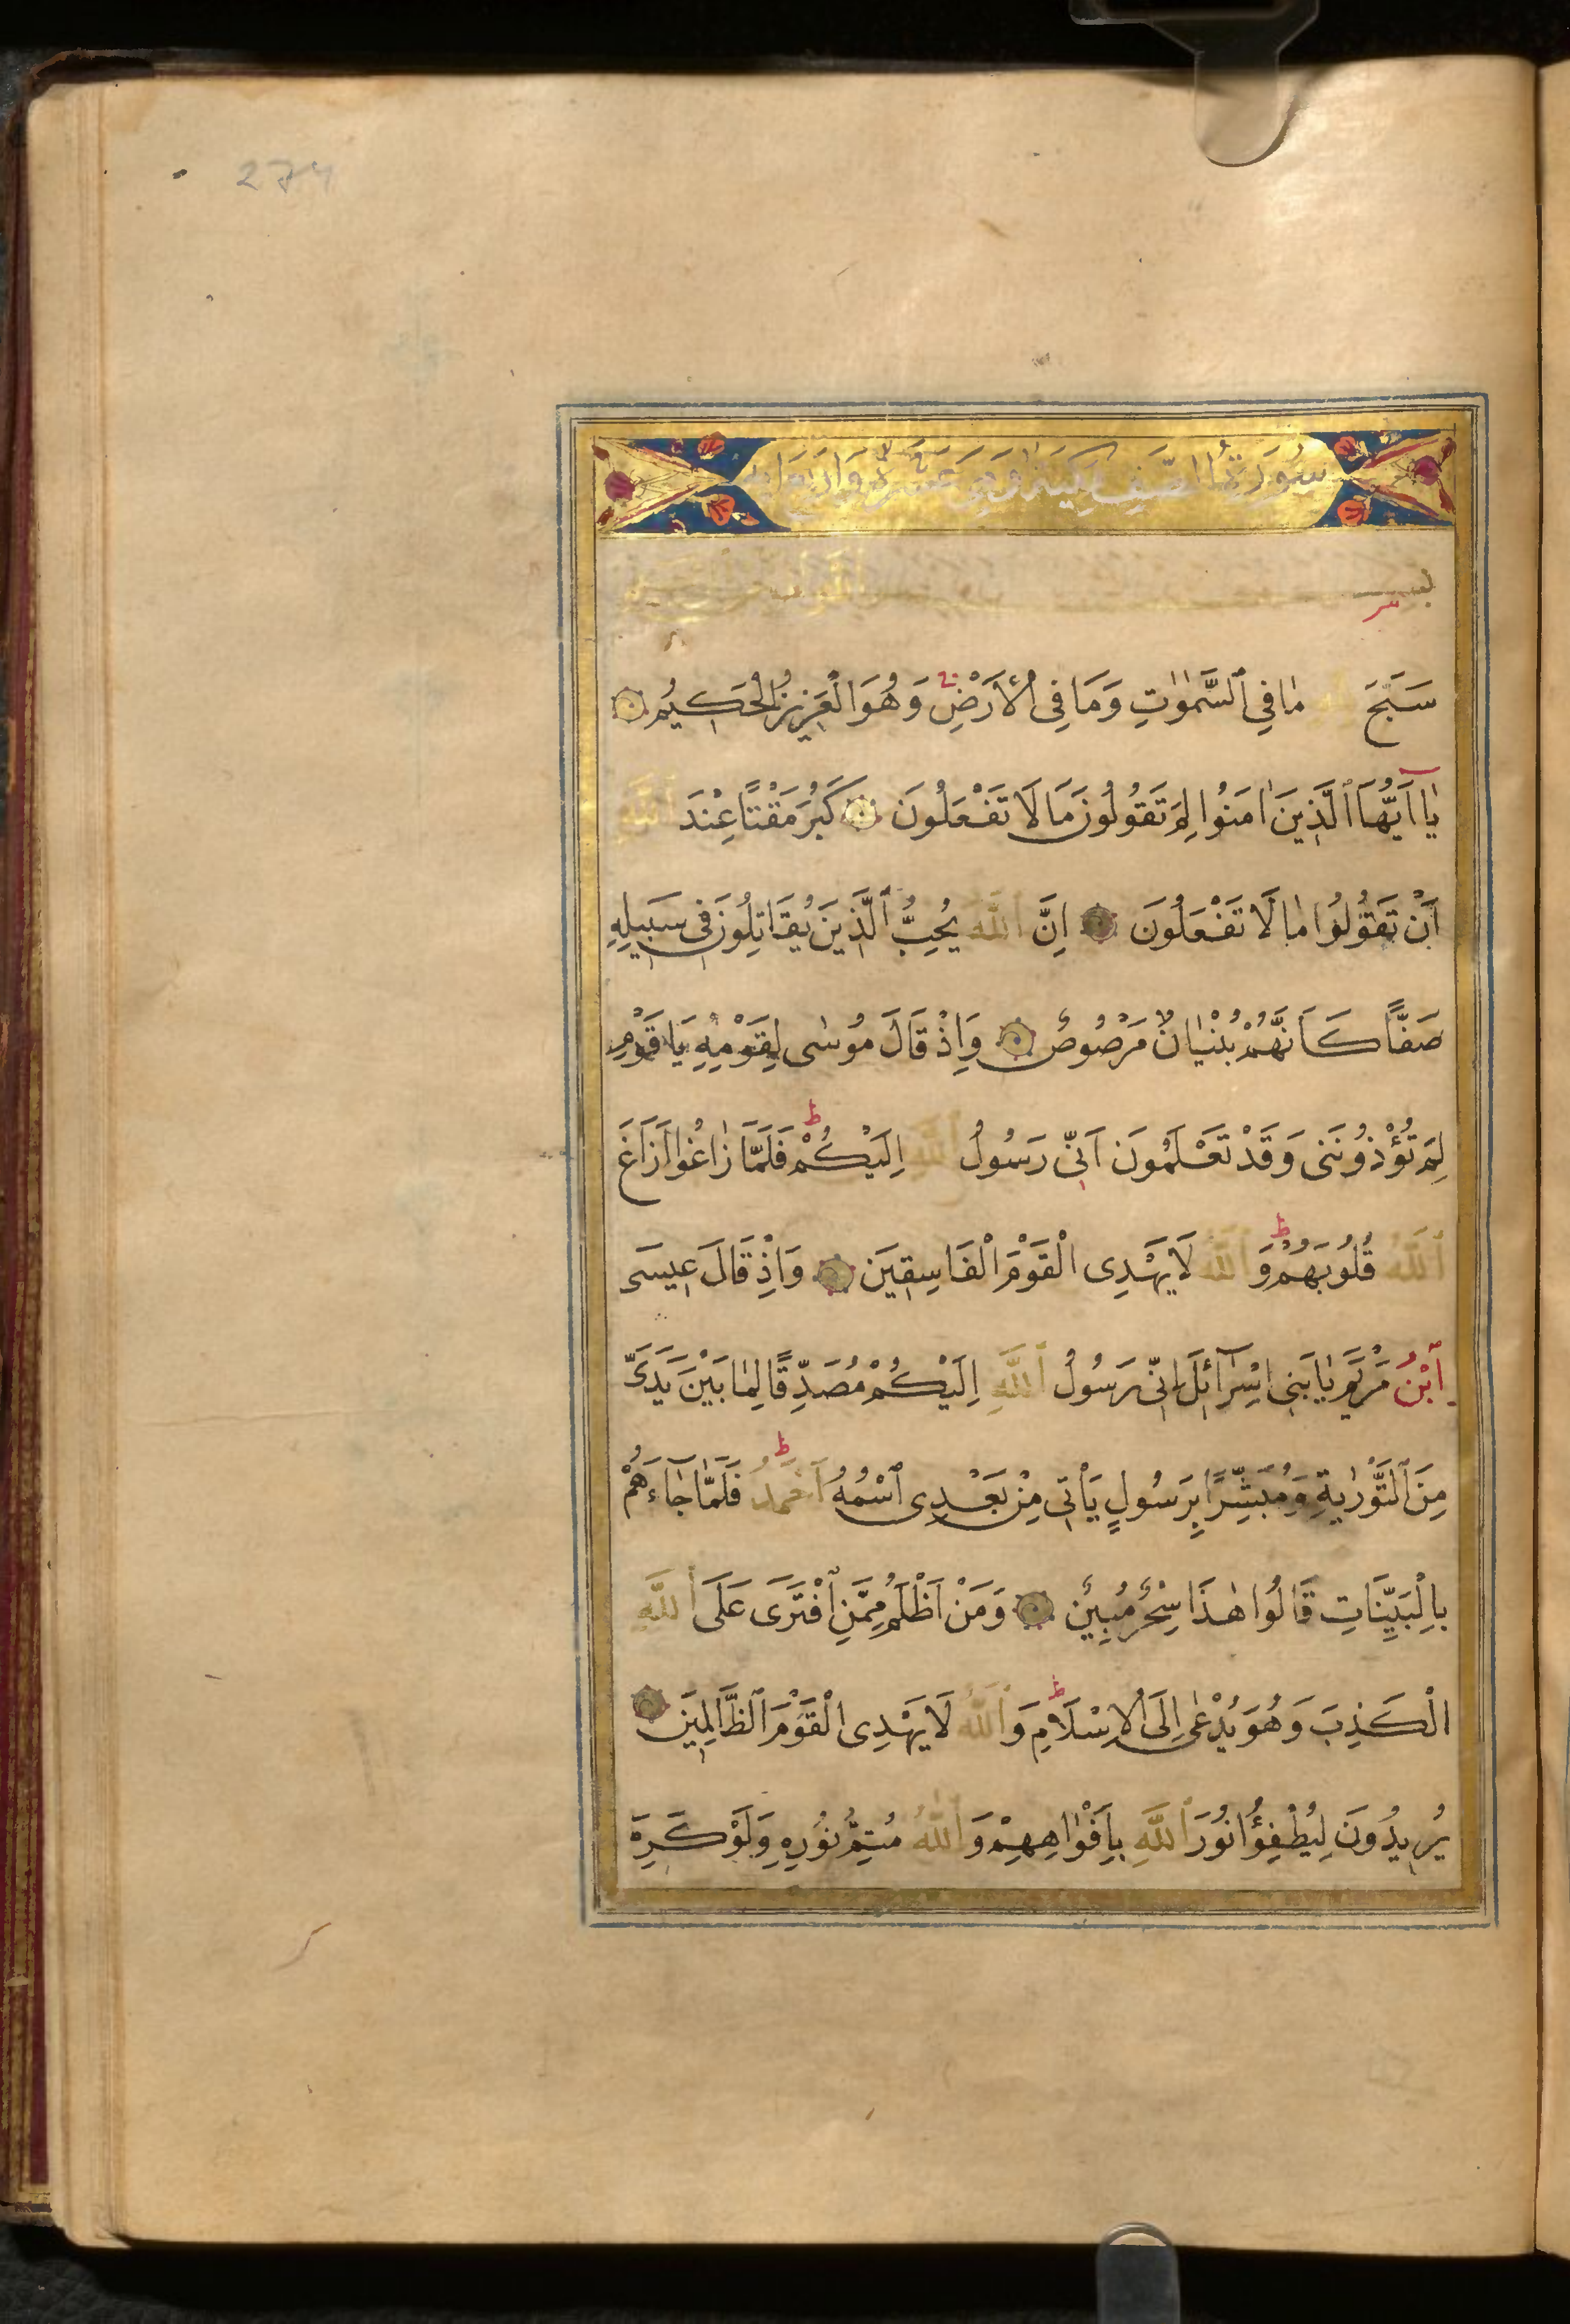 274
سُورَةُ الصَّفِّ مَكِّيَّةٌ وَهِيَ عَشْرَةَ وَاَرْبَعَ اٰيَةً
بسم اللّٰه الرحمن الرحيم
سَبَّحَ لله مٰا فِي ٱلسَّمٰوٰاتِ وَمَا فِى الْاَرْضِ وَهُوَ الْعَزِيزُ الْحَكِيمُ
يٰٓا اَيُّهَا ٱلَّذِينَ اٰمَنُوا لِمَ تَقُولُونَ مَا لَا تَفْعَلُونَ كَبُرَ مَقْتًا عِنْدَ ٱللَّهِ
اَنْ تَقُولُوا مٰا لَا تَفْعَلُونَ اِنَّ ٱللَّهَ يُحِبُّ ٱلَّذِينَ يُقَاتِلُونَ فِى سَبِيلِهِ
صَفًّا كَاَنَّهُمْ بُنْيٰانٌ مَرْصُوصٌ وَاِذْ قَالَ مُوسٰى لِقَوْمِهِ يَا قَوْمِ
لِمَ تُؤْذُونَنِى وَقَدْ تَعْلَمُونَ اَنِّى رَسُولُ ٱللَّهِ اِلَيْكُمْ فَلَمَّا زٰاغُوا اَزَاغَ
ٱللَّهُ قُلُوبَهُمْ وَٱللَّهُ لَا يَهْدِى الْقَوْمَ الْفَاسِقِينَ وَاِذْ قَالَ عِيسَى
ٱبْنُ مَرْيَمَ يٰا بَنِى اِسْرَآئِلَ اِنِّى رَسُولُ ٱللَّهِ اِلَيْكُمْ مُصَدِّقًا لِمٰا بَيْنَ يَدَىَّ
مِنَ ٱلتَّوْرٰيةِ وَمُبَشِّرًا بِرَسُولٍ يَأْتِى مِنْ بَعْدِى ٱسْمُهُ اَحْمَدُ فَلَمَّا جٰآءَهُمْ
بِالْبَيِّنَاتِ قَالُوا هٰذَا سِحْرٌ مُبِينٌ وَمَنْ اَظْلَمُ مِمَّنِ ٱفْتَرَى عَلَى ٱللَّهِ
الْكَذِبَ وَهُوَ يُدْعٰى اِلَى الْاِسْلَامِ وَٱللَّهُ لَا يَهْدِى الْقَوْمَ ٱلظَّالِمِينَ
يُرِيدُونَ لِيُطْفِؤُا نُورَ ٱللَّهِ بِاَفْوٰاهِهِمْ وَٱللَّهُ مُتِمُّ نُورِهِ وَلَوْ كَرِهَ